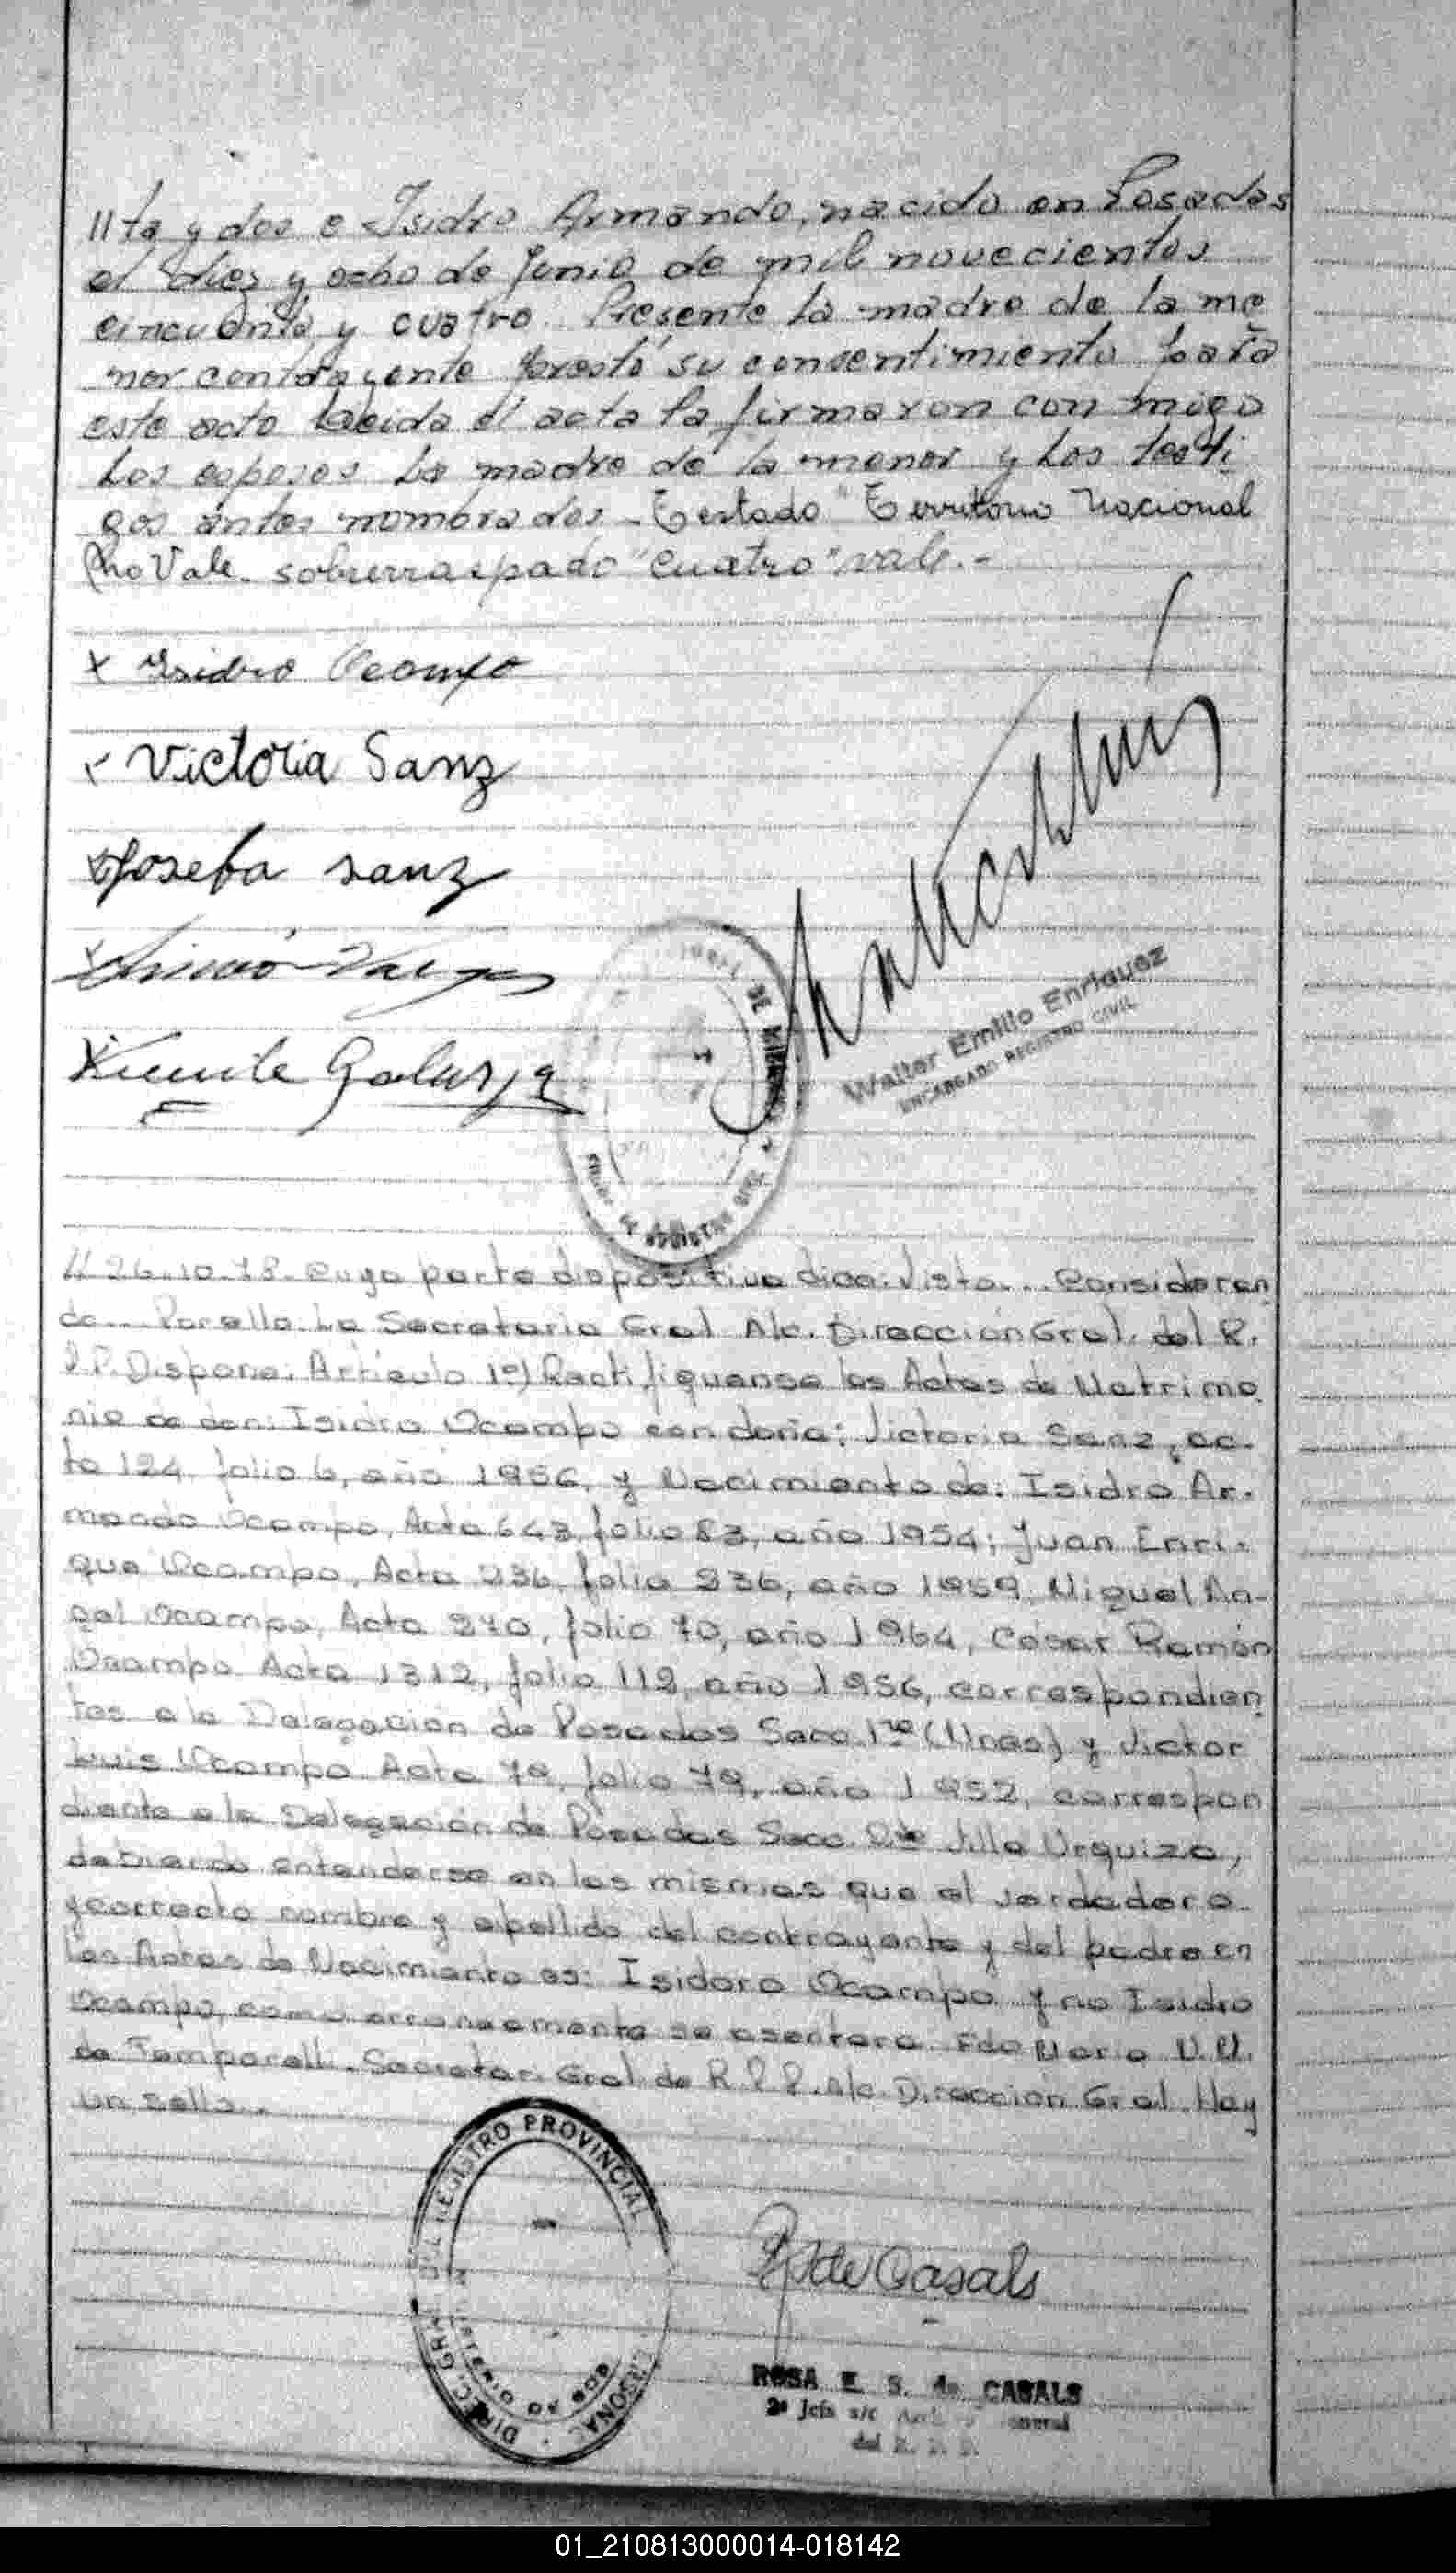 //ta y dos e Isidro Armando, nacido en Posadas
el diez y ocho de Junio de mil novecientos
cincuenta y cuatro. Presente la madre de la me
nor contrayente prestó su consentimiento para
este acto Leida el acta la firmaron con migo
Los esposos La madre de la menor y Los testi
gos antes nombrados - Testado "Territorio Nacional
No Vale. sobrerraspado "cuatro" vale.-
x Isidro Ocampo
Victoria Sanz
Josefa Sanz
Vargas
Vicente Galarza
DE MISIONES
REGISTRO
Walter Emilio Enriquez
ENCARGADO REGISTRO CIVIL
// 26.10.78. Cuya parte dispositiva dice: Visto... Consideran
do... Por ello. La Secretaria Gral A/c. Dirección Gral. del R.
P.P. Dispone: Artículo 1º) Rectifiquense las Actas de Matrimo
nio de don: Isidro Ocampo con doña: Victoria Sanz, ac-
ta 124, folio 6, año 1956, y Nacimiento de: Isidro Ar-
mando Ocampo, Acta 643, folio 83, año 1954; Juan Enri-
que Ocampo, Acta 236, folio 236, año 1959, Miguel An-
gel Ocampo, Acta 270, folio 70, año 1964, César Ramón
Ocampo Acta 1312, folio 112, año 1956, correspondien
tes a la Delegación de Posadas Secc. 1ra (Mnes) y Victor
Luis Ocampo Acta 79, folio 79, año 1952, correspon
diente a la Delegación de Posadas Secc. 2da Villa Urquiza,
debiendo entenderse en las mismas que el verdadero
y correcto nombre y apellido del contrayente y del padre en
las Actas de Nacimiento es: Isidoro Ocampo y no Isidro
Ocampo, como erroneamente se asentara. Fdo Maria V. V.
de Temporelli. Secretar. Gral. de R.P.P. A/c. Dirección Gral. Hay
un sello..
DIREC. GRAL. DEL REGISTRO PROVINCIAL
MINISTERIO DE GOB
de Casals
ROSA E. S. de CASALS
2º Jefe a/c Arch General
del R. P. P.
01_210813000014-018142